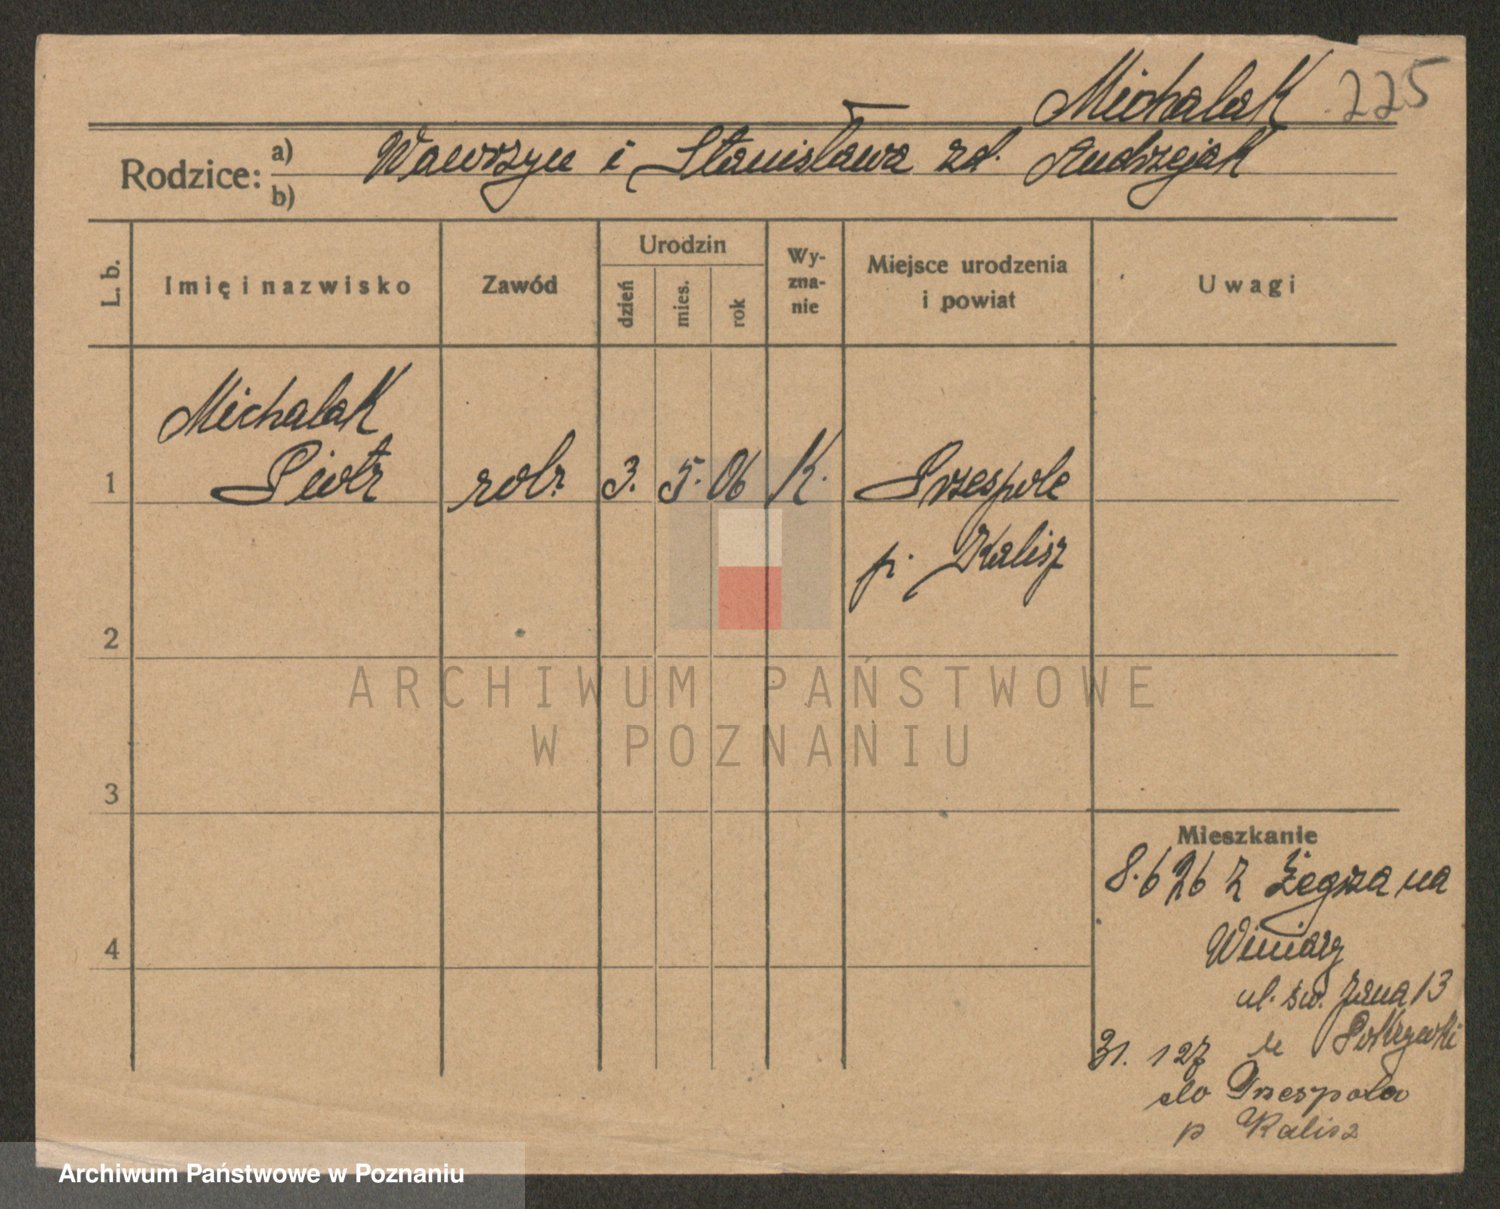 Michalak 225
Rodzice: a) b) Wawrzyn i Stanisława zd. Andrzejak
L. b. Imię i nazwisko Zawód Urodzin dzień mies. rok Wy-zna-nie Miejsce urodzenia i powiat Uwagi
Michalak
1 Piotr rob. 3. 5. 06 K. Przespole
p. Kalisz
2
ARCHIWUM PAŃSTWOWE
W POZNANIU
3
Mieszkanie
8.6 26 z Żegrza na
4 Winiary
ul. św. Jana 13
31. 1 27
do Przespola
p Kalisz
Archiwum Państwowe w Poznaniu